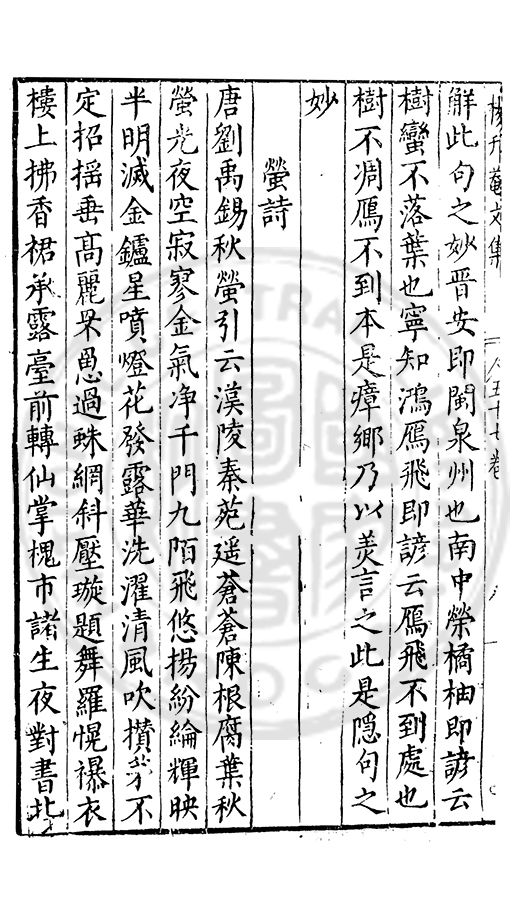 楊升菴文集 八五十七卷
解此句之妙晉安即閩泉州也南中榮橘柚即諺云
樹蠻不落葉也寧知鴻鴈飛即諺云鴈飛不到處也
樹不凋鴈不到本是瘴鄉乃以美言之此是隱句之
妙
螢詩
唐劉禹錫秋螢引云漢陵秦苑遥蒼蒼陳根腐葉秋
螢光夜空寂寥金氣净千門九陌飛悠揚紛綸輝映
半明滅金鑪星噴燈花發露華洗濯清風吹攅茅不
定招揺垂高麗罘罳過蛛網斜壓璇題舞羅幌襮衣
樓上拂香裙承露臺前轉仙掌槐市諸生夜對書北